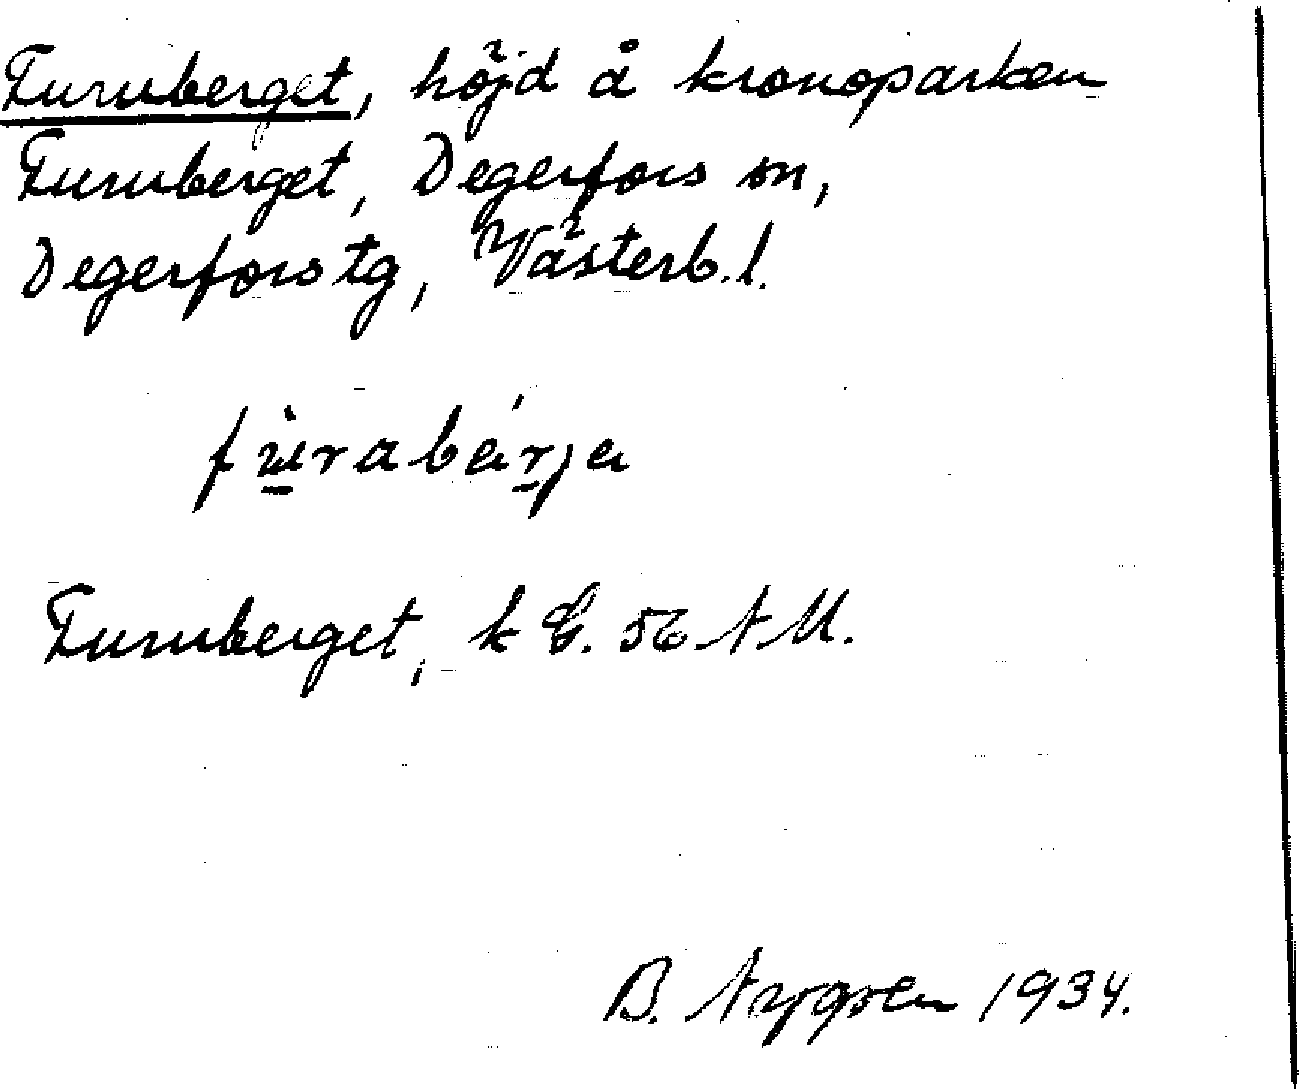 Furuberget, höjd å kronoparken
Furuberget, Degerfors sn,
Degerfors tg, Västerb. l.
furabärja
Furuberget, k G. 56 NM.
B. Nygren 1934.